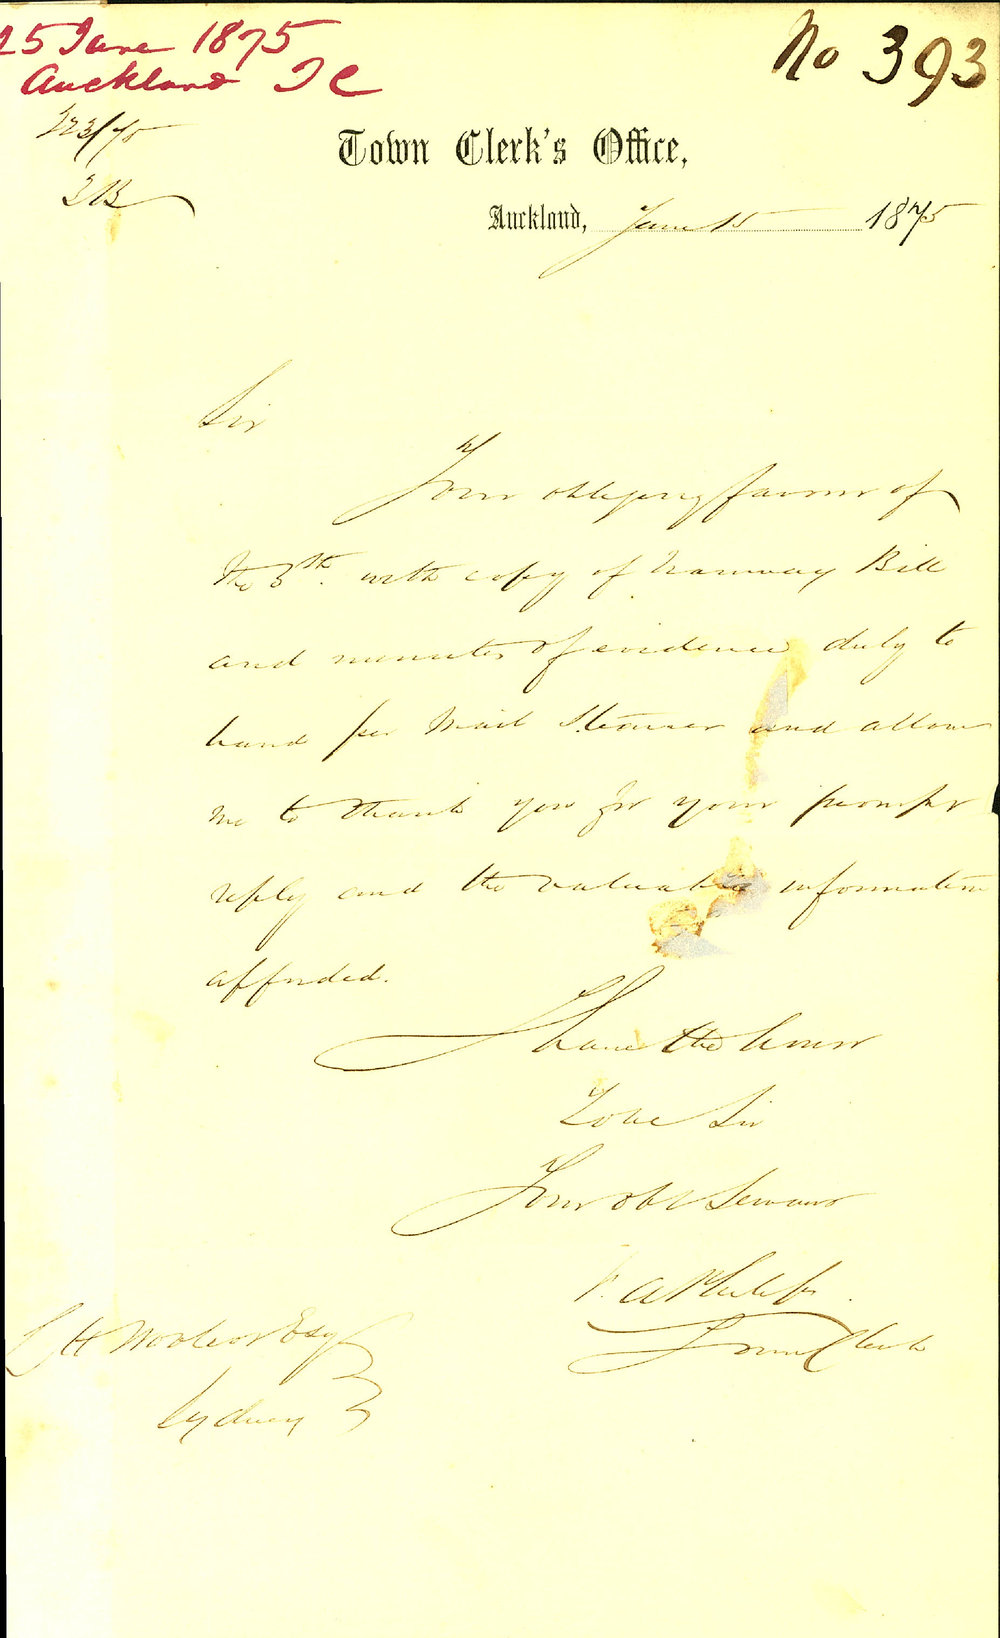 25 June 1875
Auckland T C
No 393
723/75
Town Clerk's Office,
Auckland, June 15 1875
Sir
Your obliging favour of
the 3th. with copy of Tramway Bill
and minutes of evidence duly to
hand per Mail Steamer and allow
me to thank you for your prompt
reply and the valuable information
afforded.
I have the honor
To be Sir
Your obt Servant
P. A. Philips.
Town Clerk
C H Woolcott Esq
Sydney